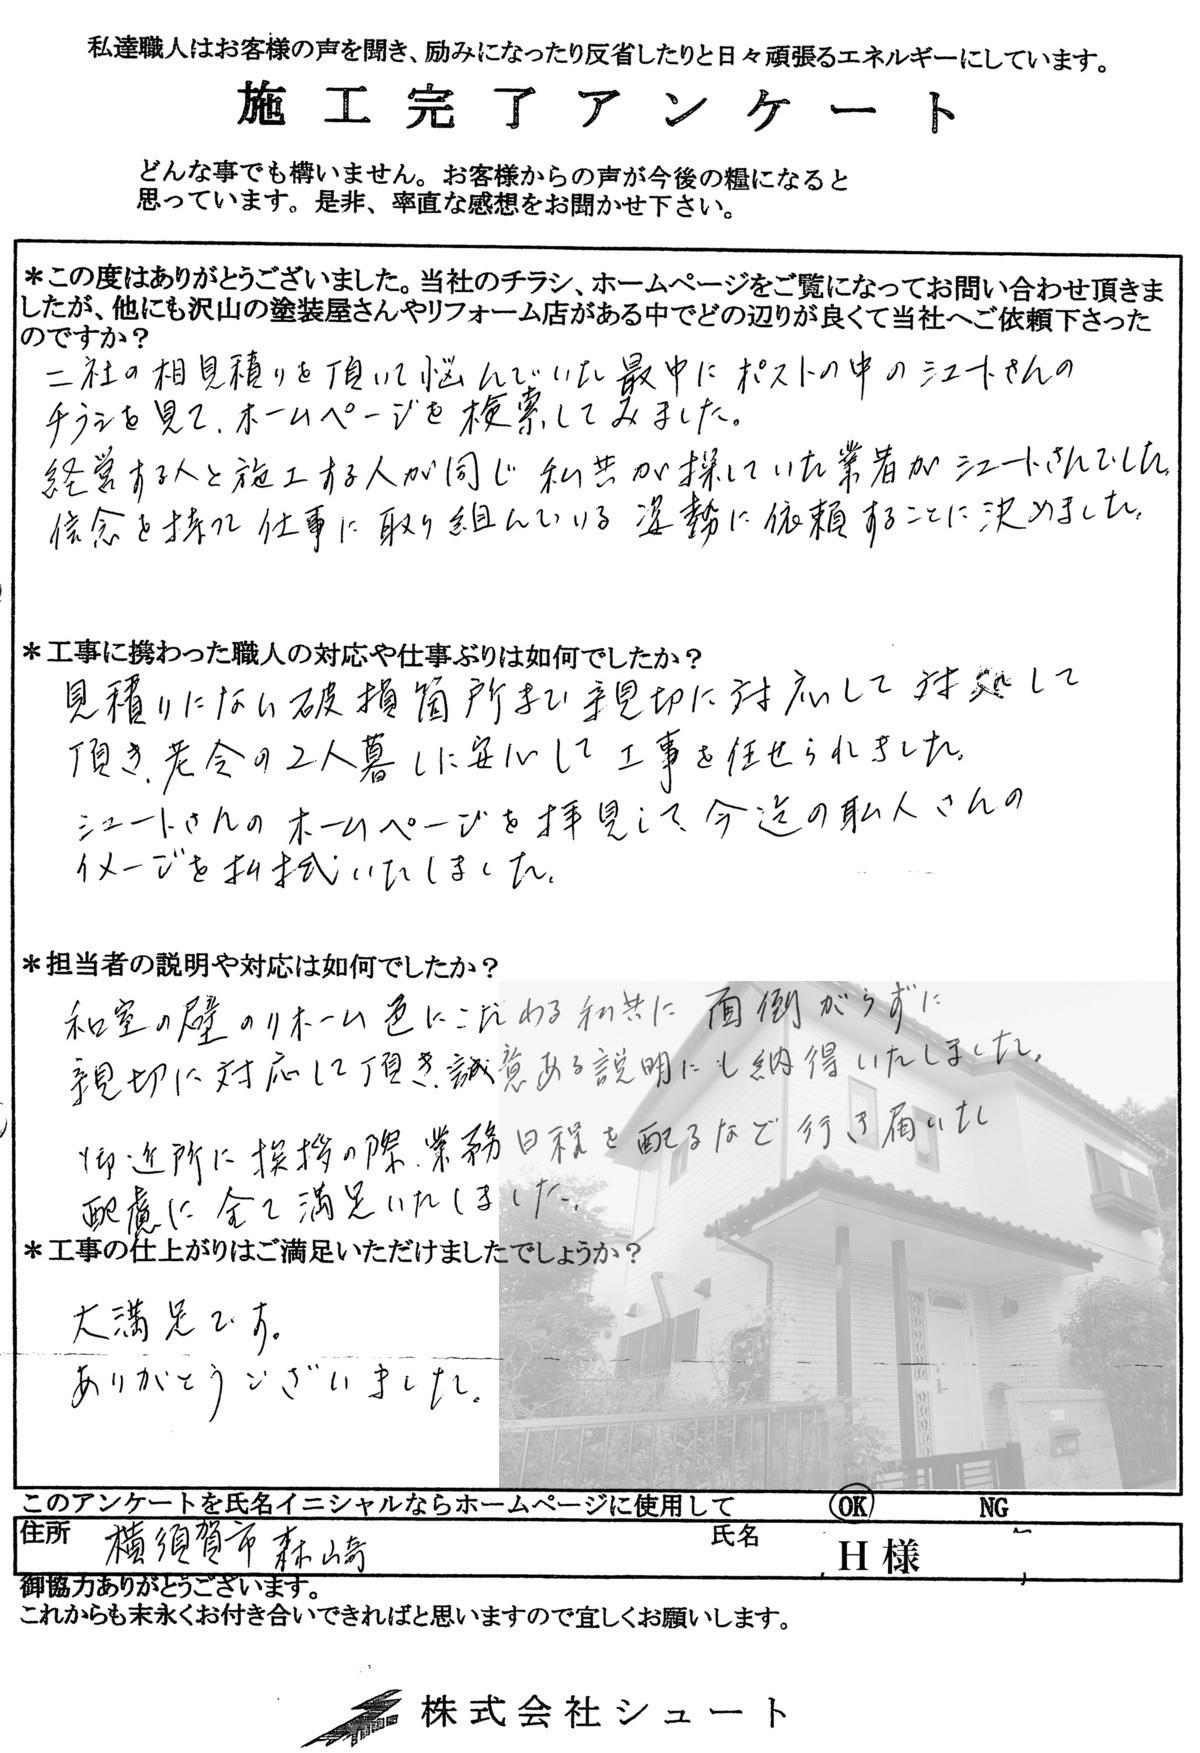 私達職人はお客様の声を聞き、励みになったり反省したりと日々頑張るエネルギーにしています。
施工完了アンケート
どんな事でも構いません。お客様からの声が今後の糧になると
思っています。是非、率直な感想をお聞かせ下さい。
＊この度はありがとうございました。当社のチラシ、ホームページをご覧になってお問い合わせ頂きま
したが、他にも沢山の塗装屋さんやリフォーム店がある中でどの辺りが良くて当社へご依頼下さった
のですか？
二社の相見積りを頂いて悩んでいた最中にポストの中のシュートさんの
チラシを見て、ホームページを検索してみました。
経営する人と施工する人が同じ私共が探していた業者がシュートさんでした。
信念を持って仕事に取り組んでいる姿勢に依頼することに決めました。
＊工事に携わった職人の対応や仕事ぶりは如何でしたか？
見積りにない破損箇所まで親切に対応して対処して
頂き、老令の2人暮しに安心して工事を任せられました。
シュートさんのホームページを拝見して、今迄の職人さんの
イメージを払拭いたしました。
＊担当者の説明や対応は如何でしたか？
和室の壁のリホーム色にこだわる私共に面倒がらずに
親切に対応して頂き、誠意ある説明にも納得いたしました。
御近所に挨拶の際、業務日程を配るなど行き届いた
配慮に全て満足いたしました。
＊工事の仕上がりはご満足いただけましたでしょうか？
大満足です。
ありがとうございました。
このアンケートを氏名イニシャルならホームページに使用して OK NG
住所 横須賀市森崎 氏名 H様
御協力ありがとうございます。
これからも末永くお付き合いできればと思いますので宜しくお願いします。
株式会社シュート